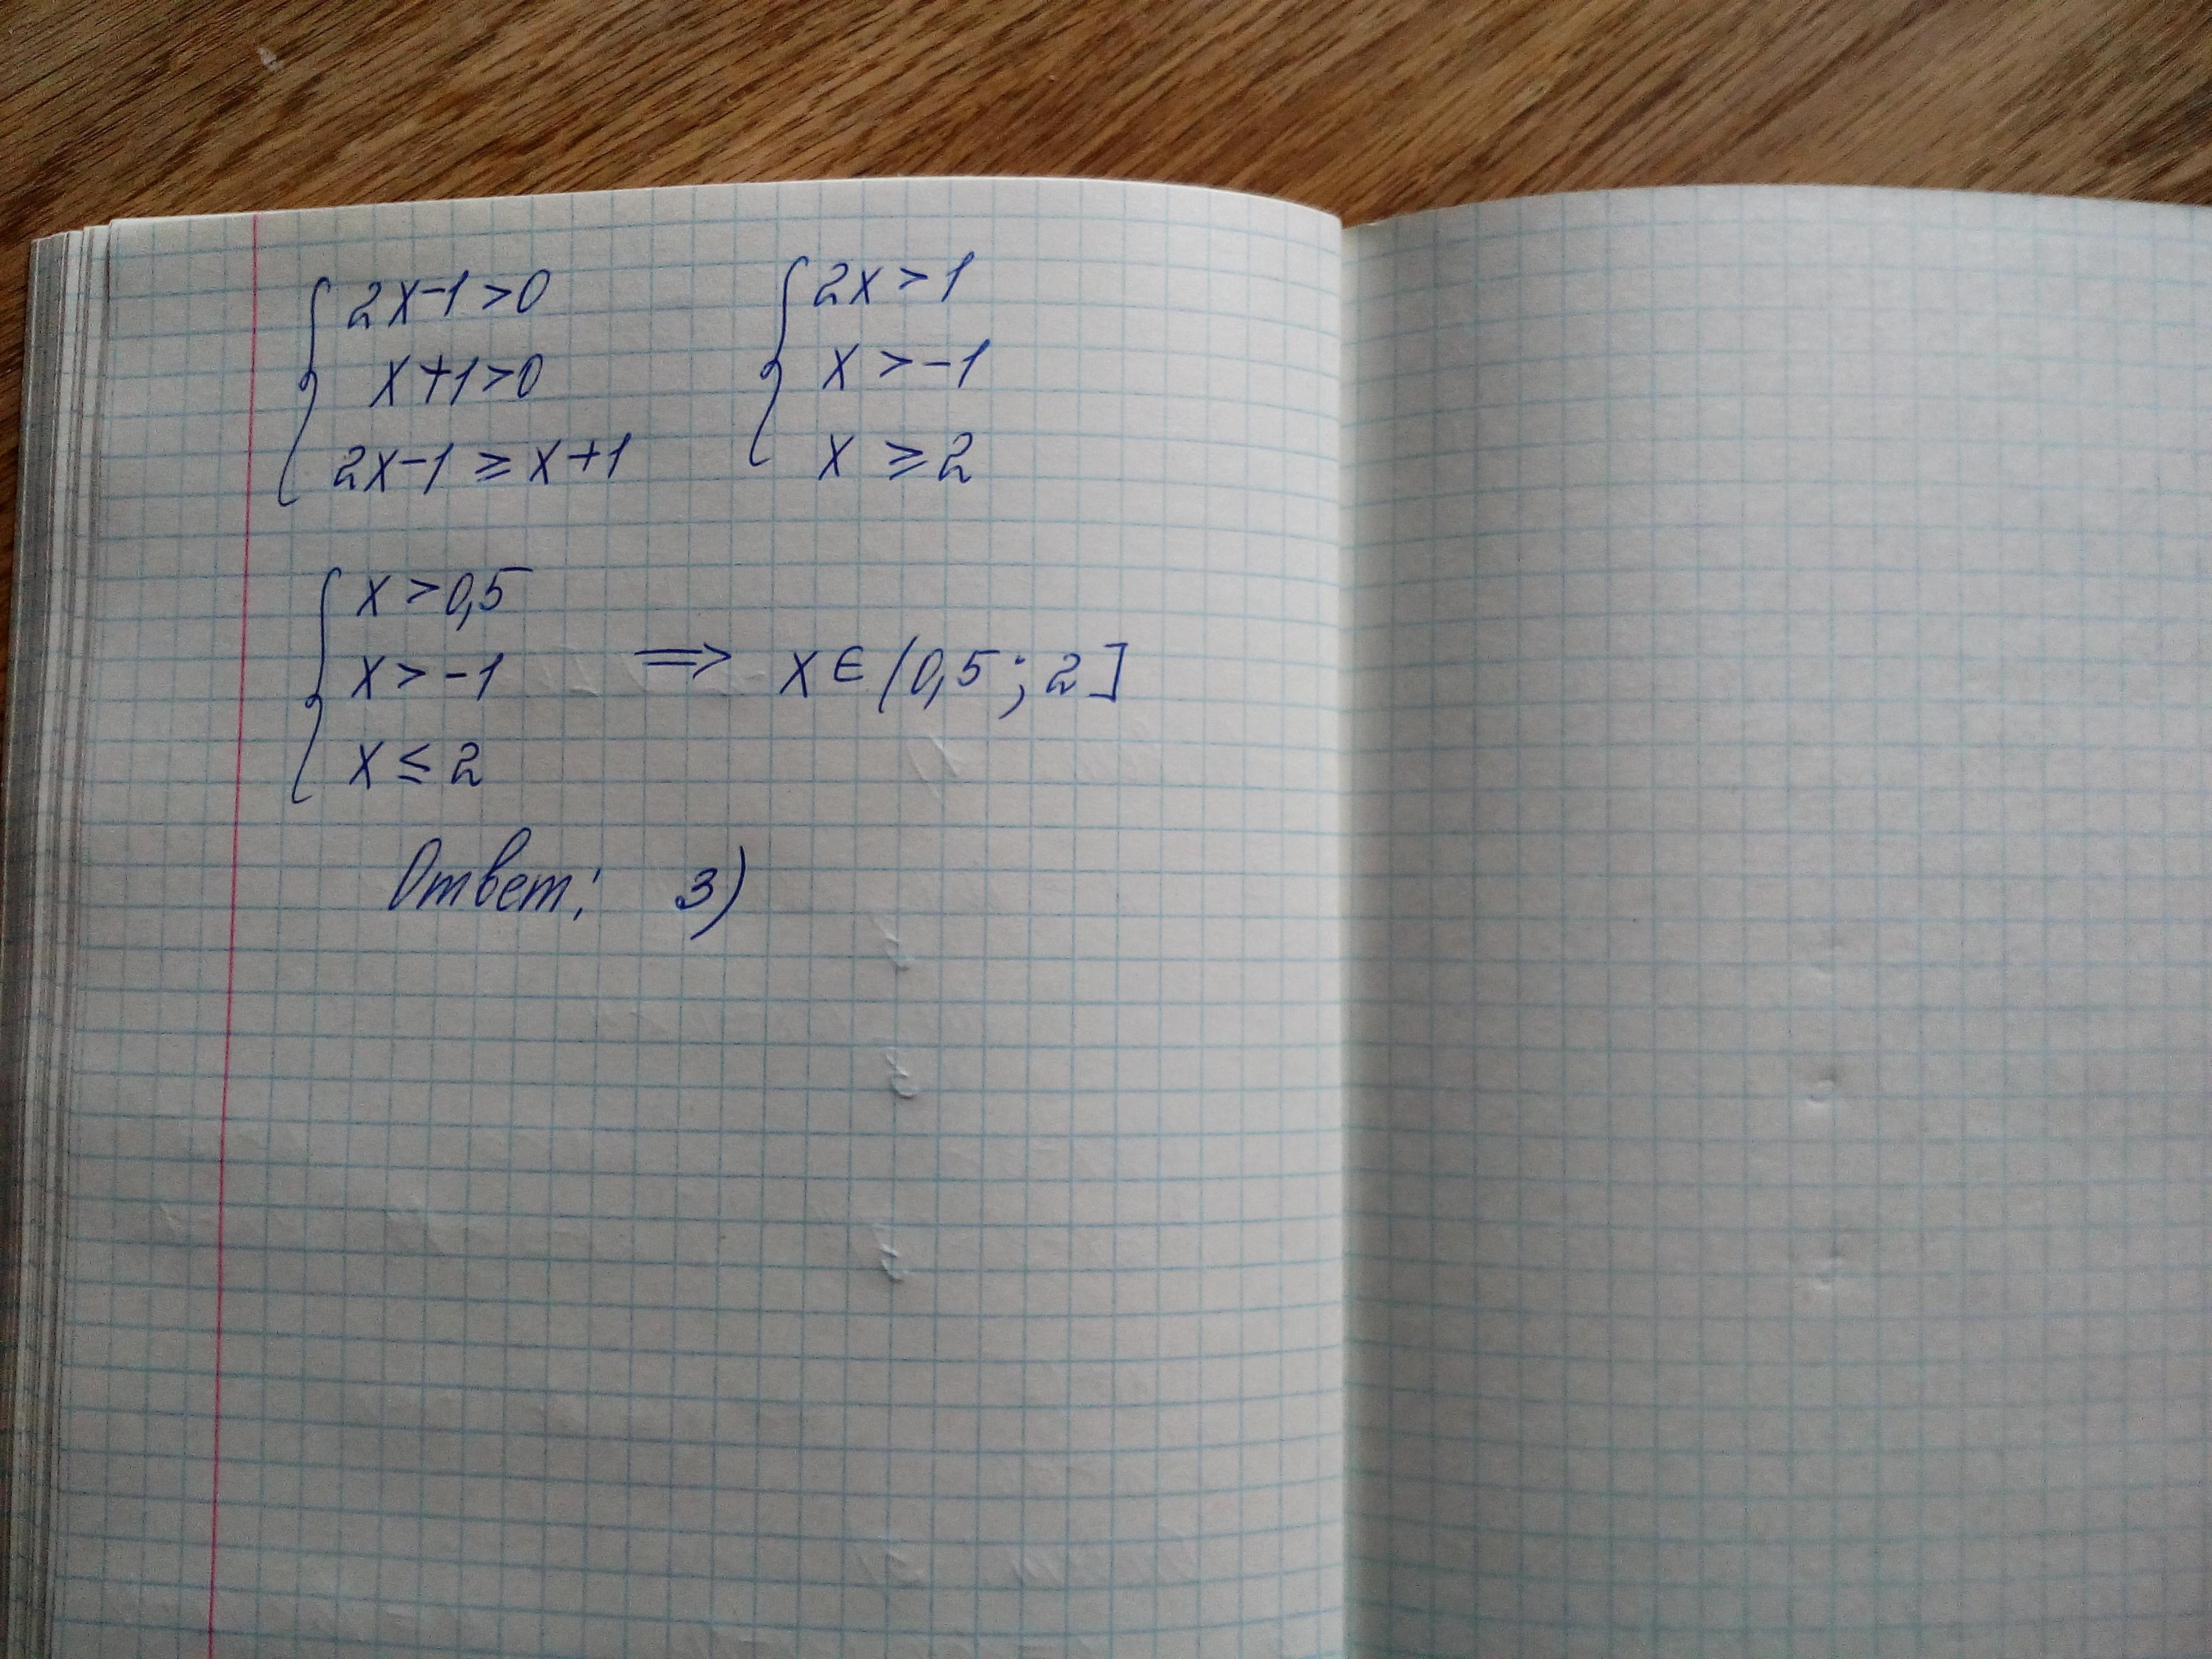 2x-1>0
x+1>0
2x-1⩾x+1
2x>1
x>-1
x⩾2
x>0,5
x>-1
x≤2
⟹ x∈(0,5;2]
Ответ: 3)